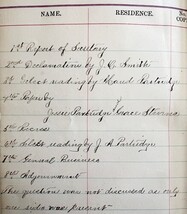 NAME. RESIDENCE.
1st Report of Secretary
2nd Declamation by J. C. Smith
3 Select reading by Maud Partridge
4th Paper by
Jessie Partridge Grace Stevens
5th Recess
6th Select reading by J. A. Partridge
7th General Business
8th Adjournment
The question was not discussed as only
one side was present